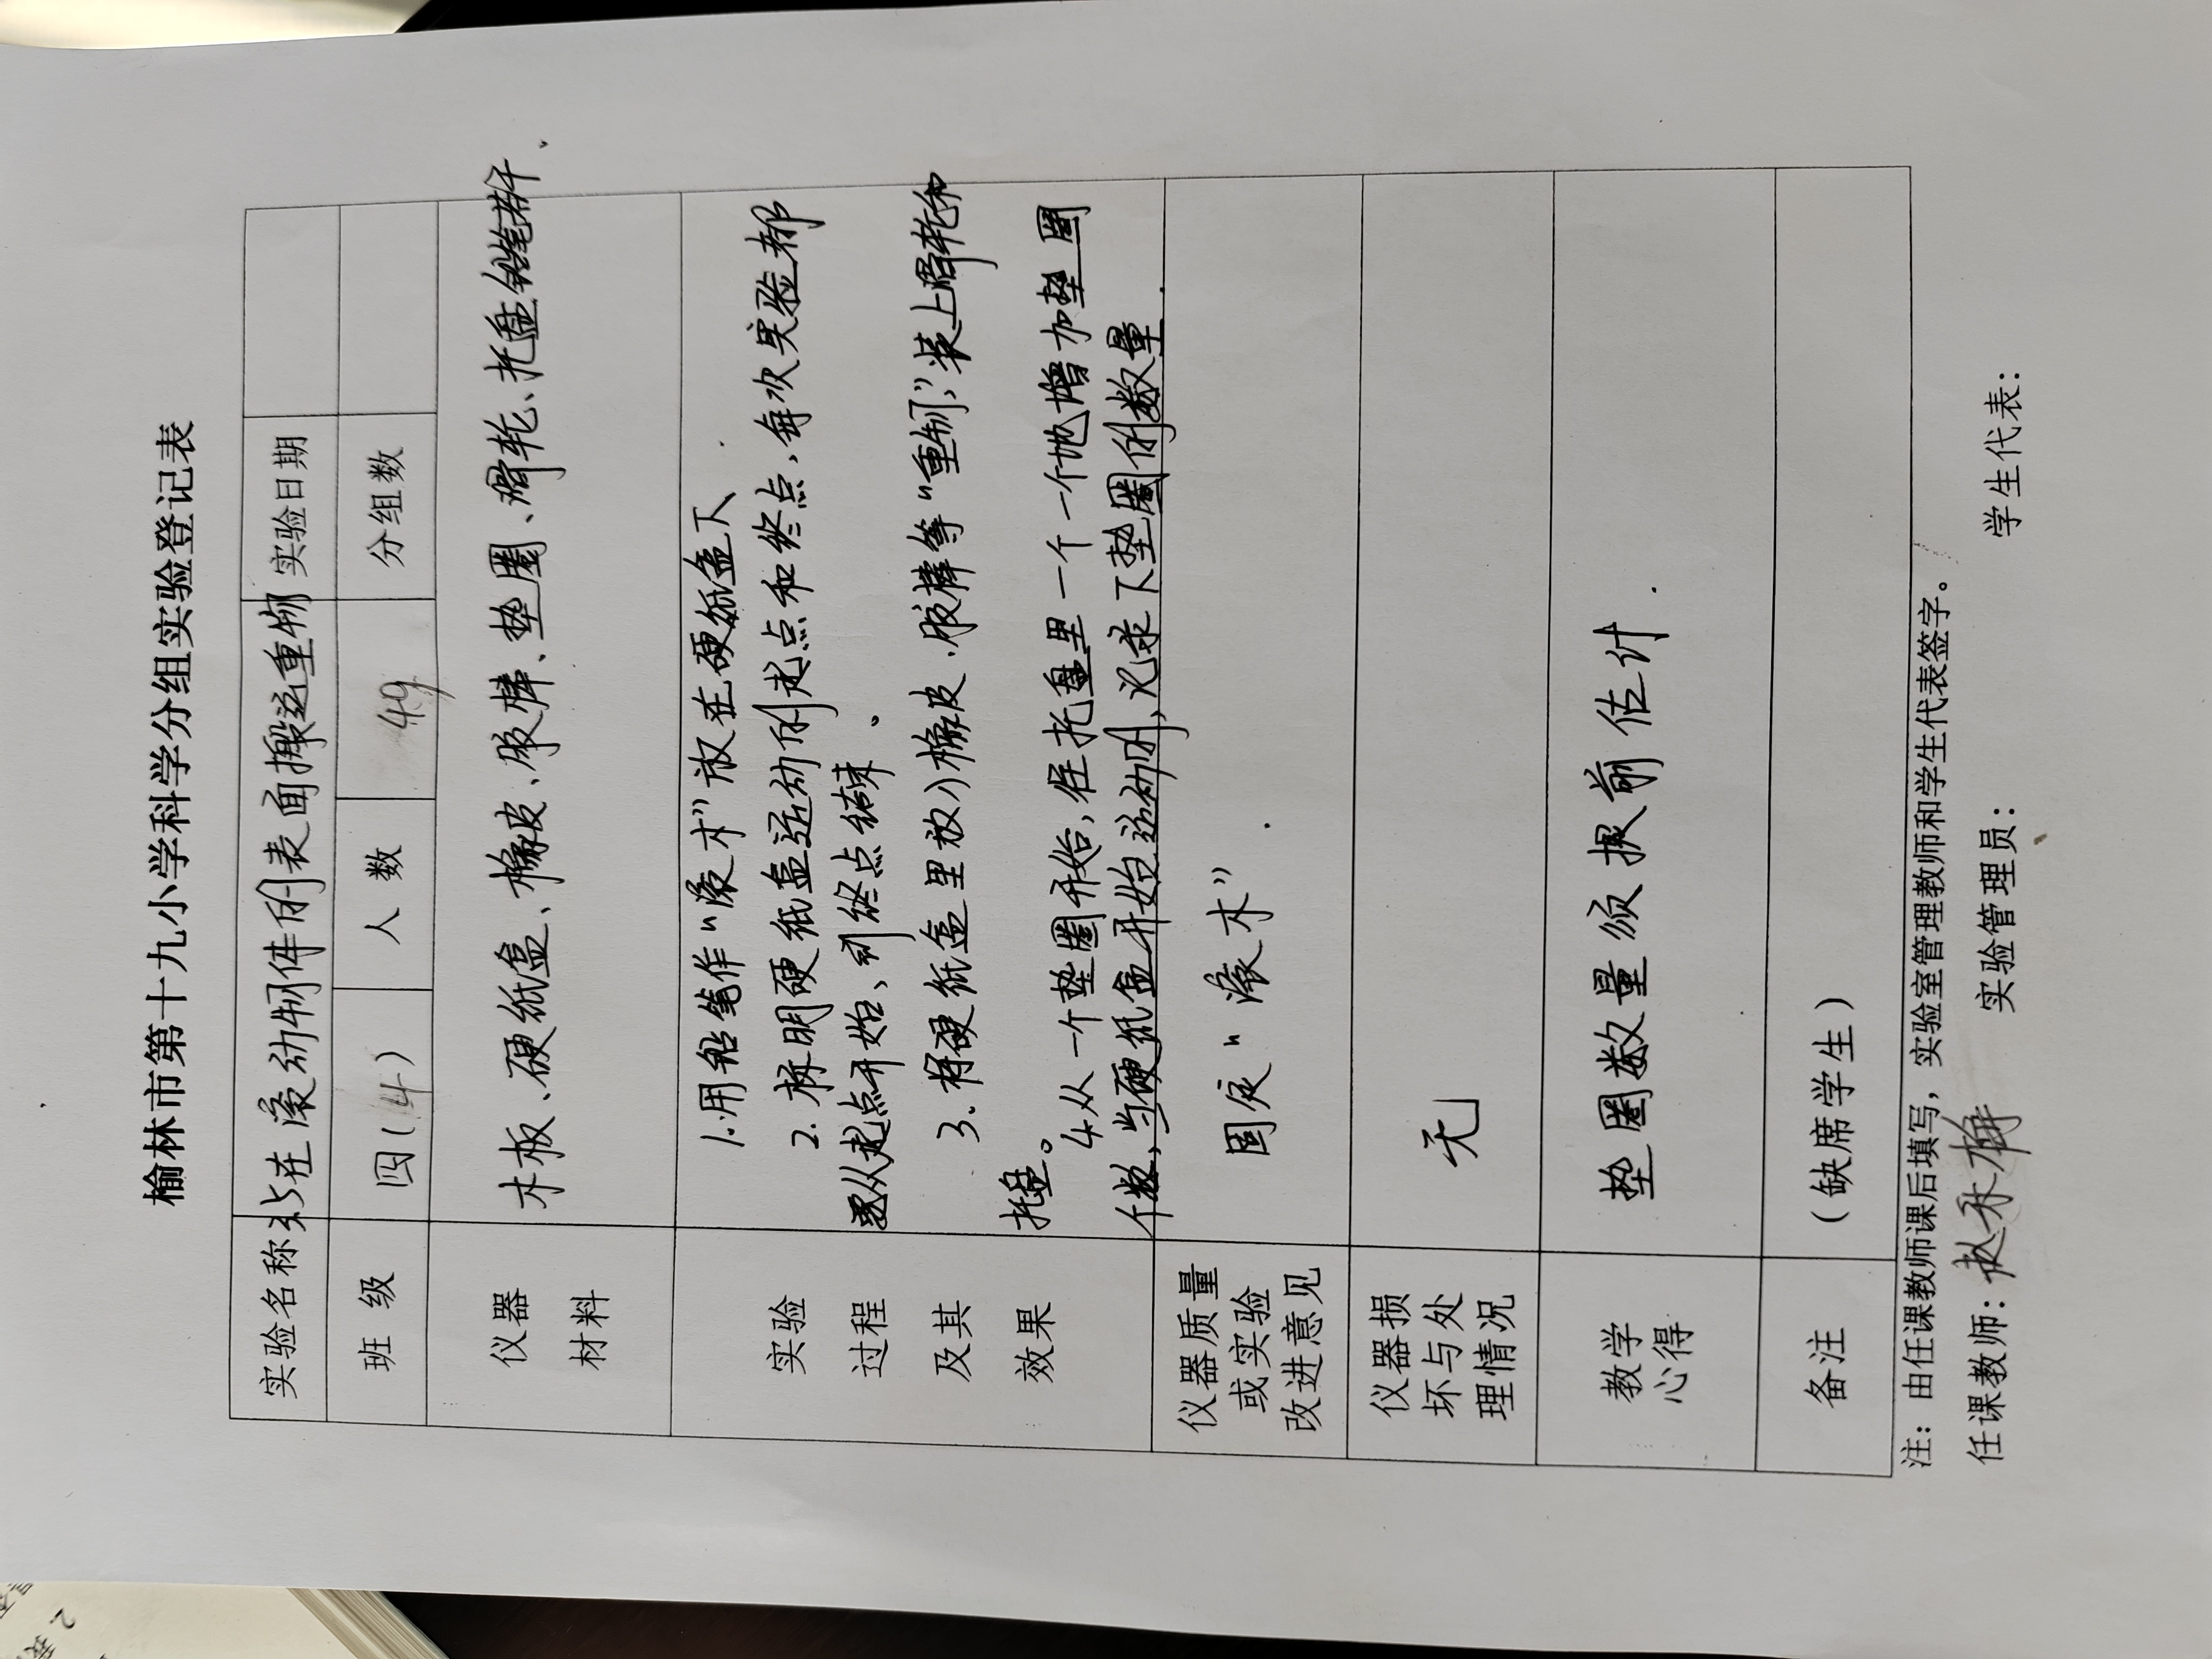 榆林市第十九小学科学分组实验登记表
实验名称 在滚动物件的表面搬运重物 实验日期
班 级 四(14) 人 数 49 分组数
仪器
材料
木板、硬纸盒、橡皮、胶棒、垫圈、滑轮、托盘 铅笔若干、
实验
过程
及其
效果
1.用铅笔作“滚木”放在硬纸盒下
2.标明硬纸盒运动的起点和终点,每次实验都
要从起点开始、到终点结束、
3.将硬纸盒里放小橡皮、胶棒等“重物”,装上滑轮和
托盘。
4从一个垫圈开始,往托盘里一个一个地增加垫圈
个数,当硬纸盒开始运动时,记录下垫圈的数量
仪器质量
或实验
改进意见
固定“滚木”
仪器损
坏与处
理情况
无
教学
心得
垫圈数量须提前估计.
备注
(缺席学生)
注:由任课教师课后填写,实验室管理教师和学生代表签字。
任课教师:赵 实验管理员: 学生代表:
2.